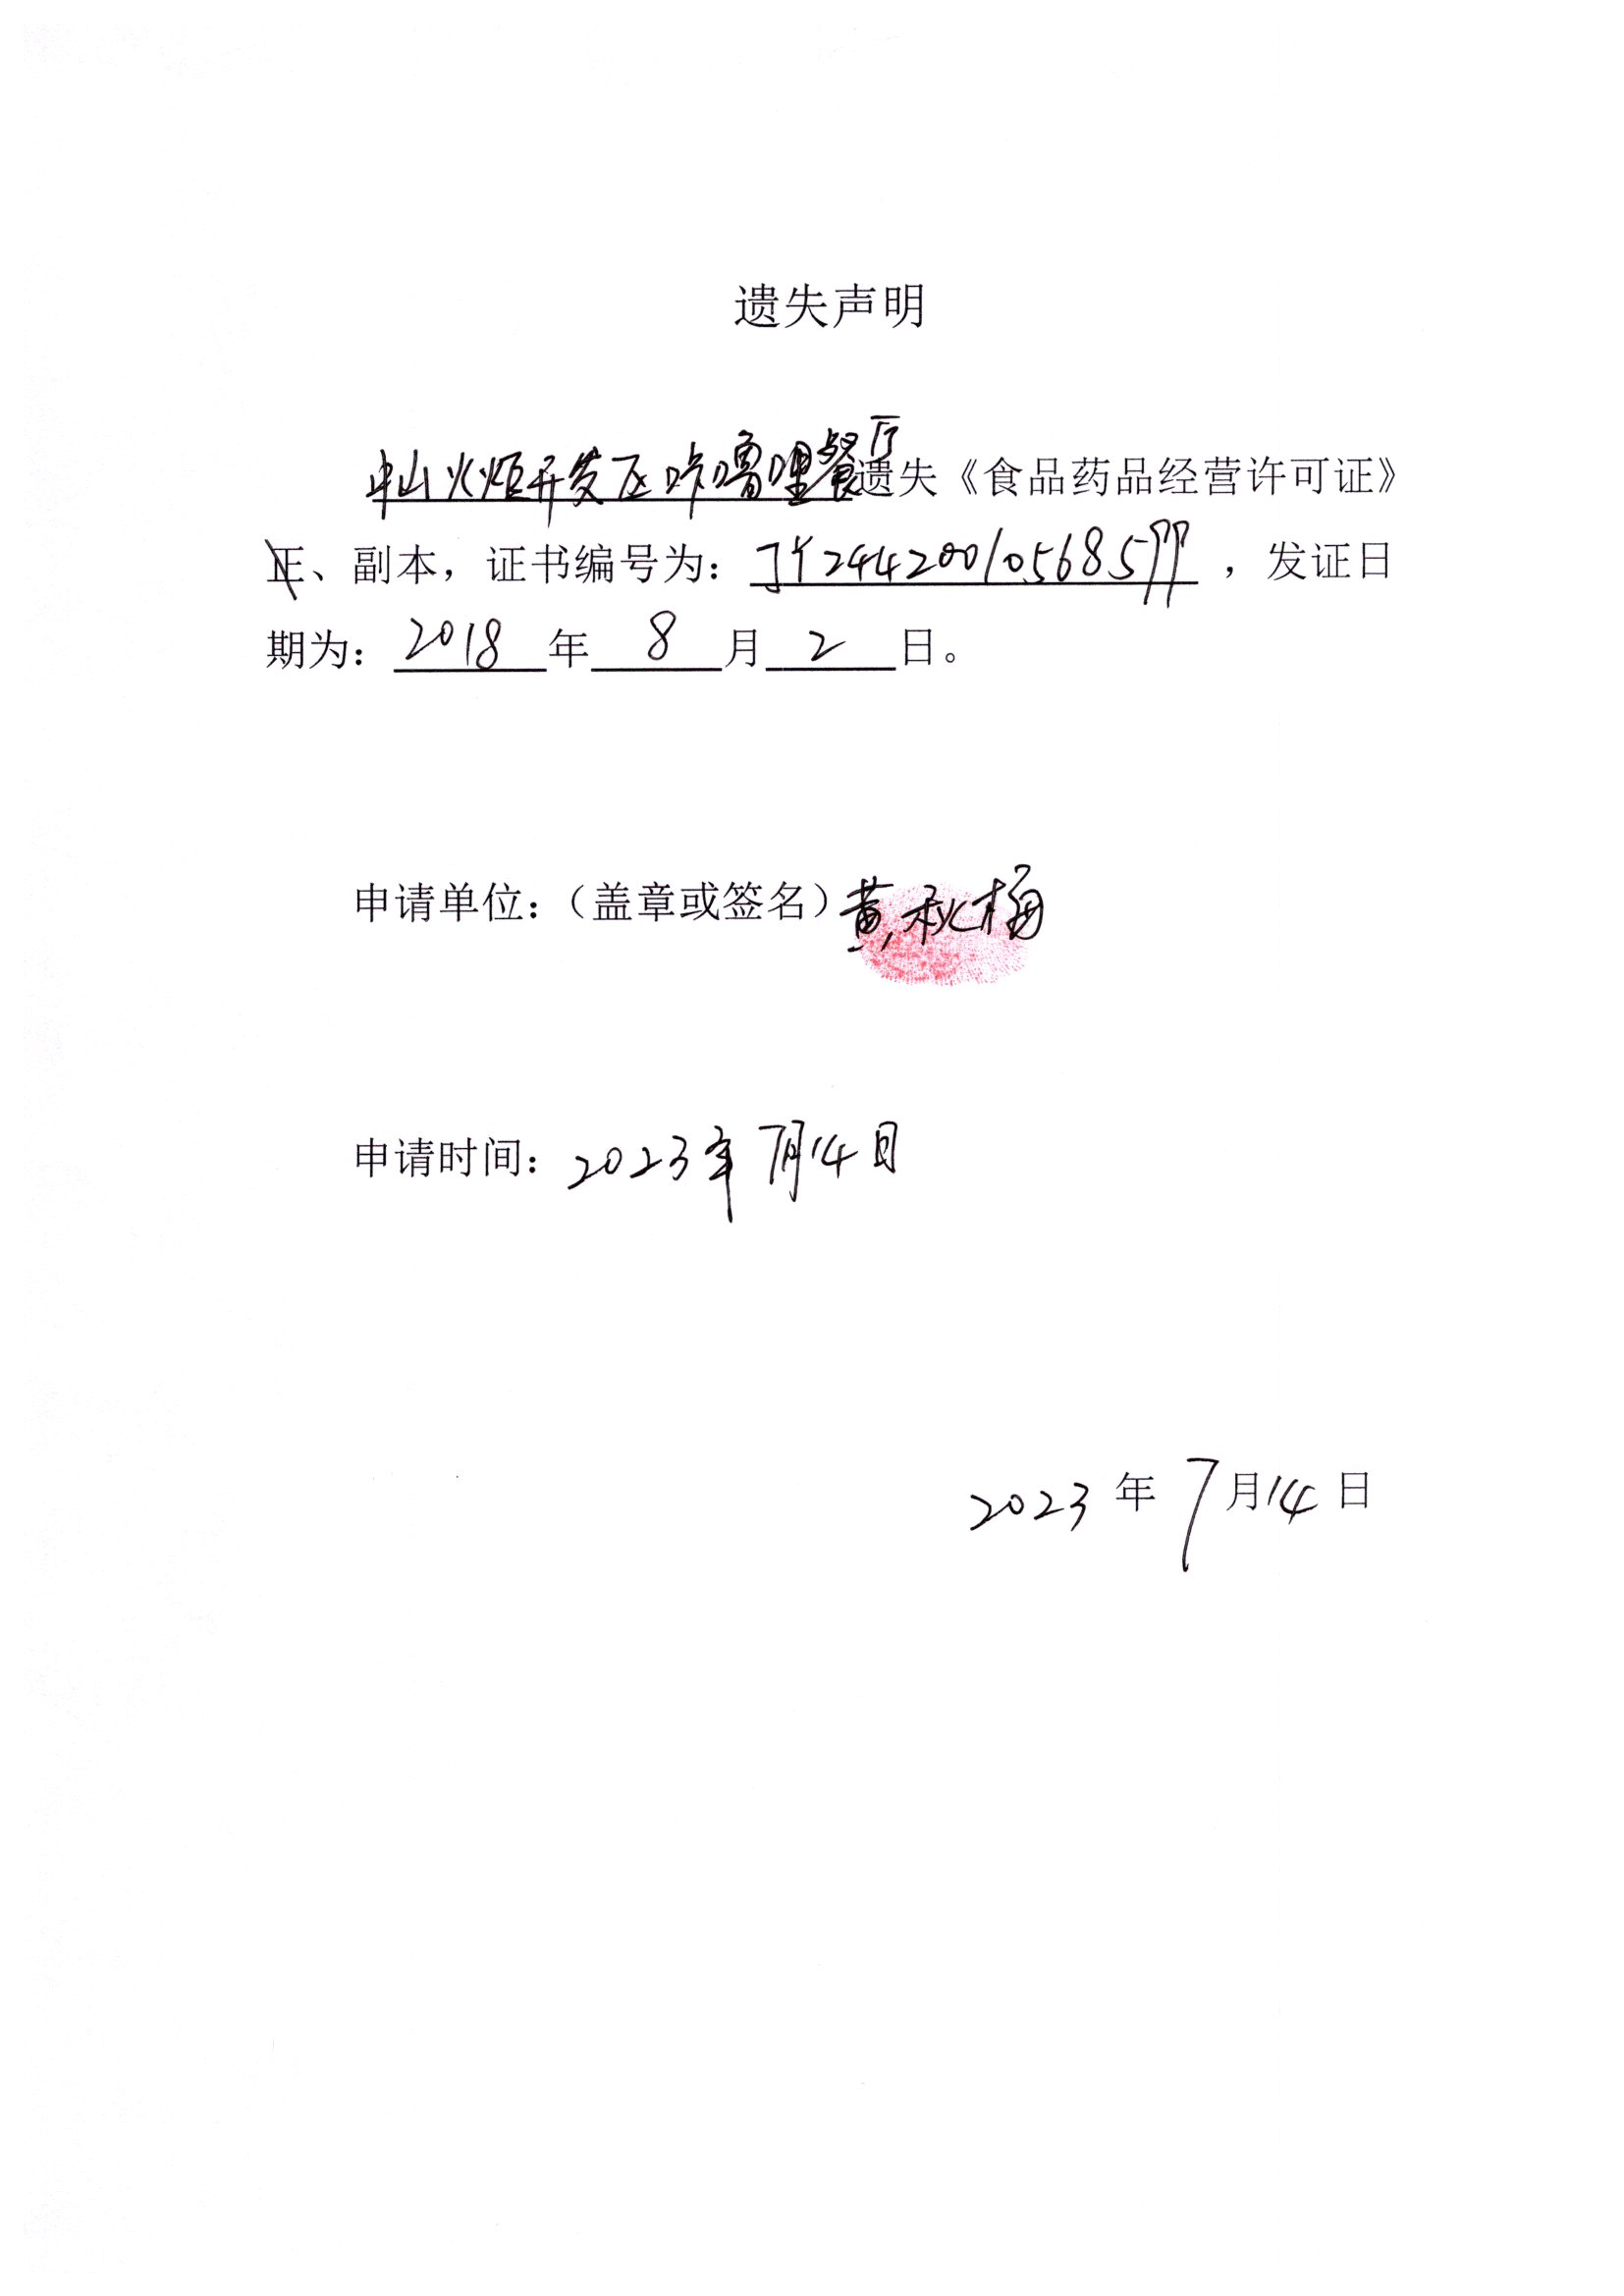 遗失声明
中山火炬开发区咔噜哩餐厅遗失《食品药品经营许可证》
正、副本，证书编号为：JY24420010568577，发证日
期为：2018年8月2日。
申请单位：（盖章或签名）黄秋梅
申请时间：2023年7月14日
2023年7月14日